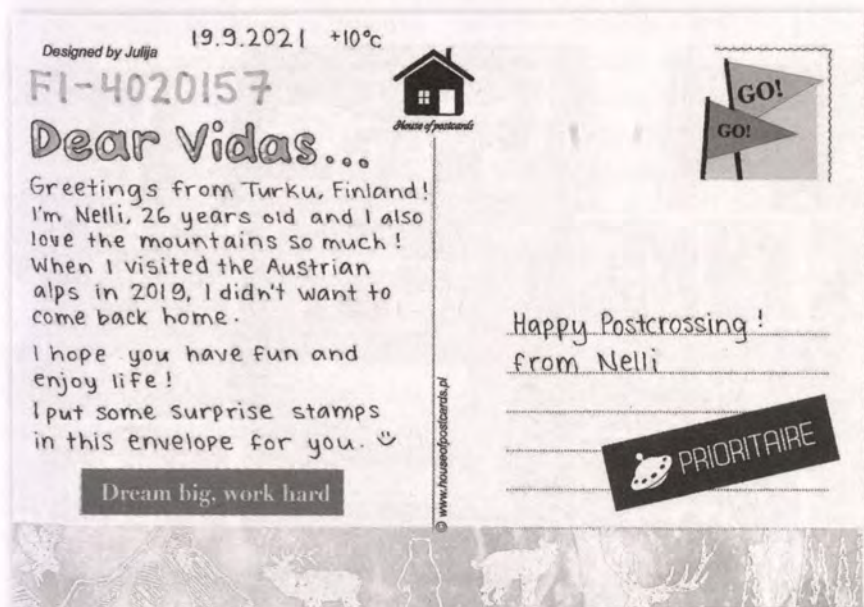 19.9.2021 +10°c
Designed by Julija
FI-4020157
House of postcards
GO!
GO!
Dear Vidas...
Greetings from Turku, Finland!
I'm Nelli, 26 years old and I also
love the mountains so much!
When I visited the Austrian
alps in 2019, I didn't want to
come back home.
I hope you have fun and
enjoy life!
I put some surprise stamps
in this envelope for you.
Dream big, work hard
© www.houseofpostcards.pl
Happy Postcrossing!
from Nelli
PRIORITAIRE